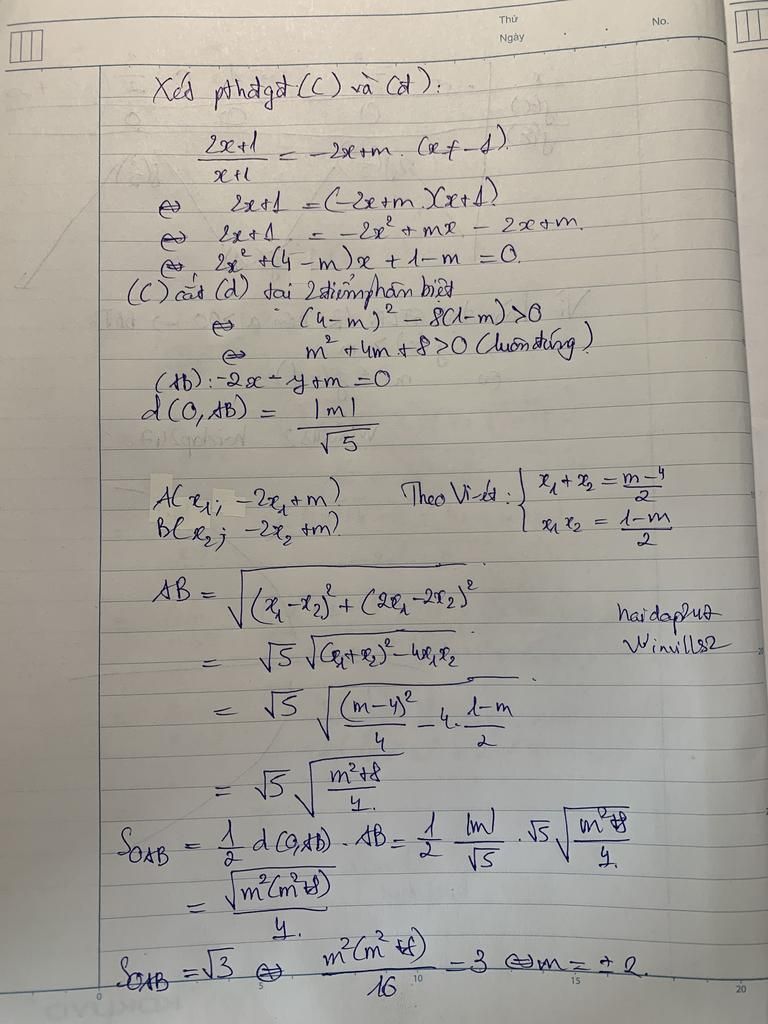 Thứ
Ngày
No.
Xét pthđgđ (C) và (d):
\frac{2x+1}{x+1} = -2x+m. (x ≠ -1).
⇔ 2x+1 = (-2x+m)(x+1)
⇔ 2x+1 = -2x² + mx - 2x+m.
⇔ 2x² + (4-m)x + 1-m = 0.
(C) cắt (d) tại 2 điểm phân biệt
⇔ (4-m)² - 8(1-m) > 0
⇔ m² + 4m + 8 > 0 (luôn đúng)
(AB): -2x - y + m = 0
d(O, AB) = \frac{|m|}{\sqrt{5}}
A(x₁; -2x₁+m) Theo Vi-ét: { x₁ + x₂ = \frac{m-4}{2}
B(x₂; -2x₂+m) x₁x₂ = \frac{1-m}{2}
AB = \sqrt{(x₁-x₂)² + (2x₁-2x₂)²}
haidap247
= \sqrt{5} \sqrt{(x₁+x₂)² - 4x₁x₂}
Winvills2
= \sqrt{5} \sqrt{\frac{(m-4)²}{4} - 4.\frac{1-m}{2}}
= \sqrt{5} \sqrt{\frac{m²+8}{4}}
S_{OAB} = \frac{1}{2} d(O,AB) . AB = \frac{1}{2} \frac{|m|}{\sqrt{5}} . \sqrt{5} \sqrt{\frac{m²+8}{4}}
= \frac{\sqrt{m²(m²+8)}}{4}.
S_{OAB} = \sqrt{3} ⇔ \frac{m²(m²+8)}{16} = 3 ⇔ m = ±2.
0 5 10 15 20